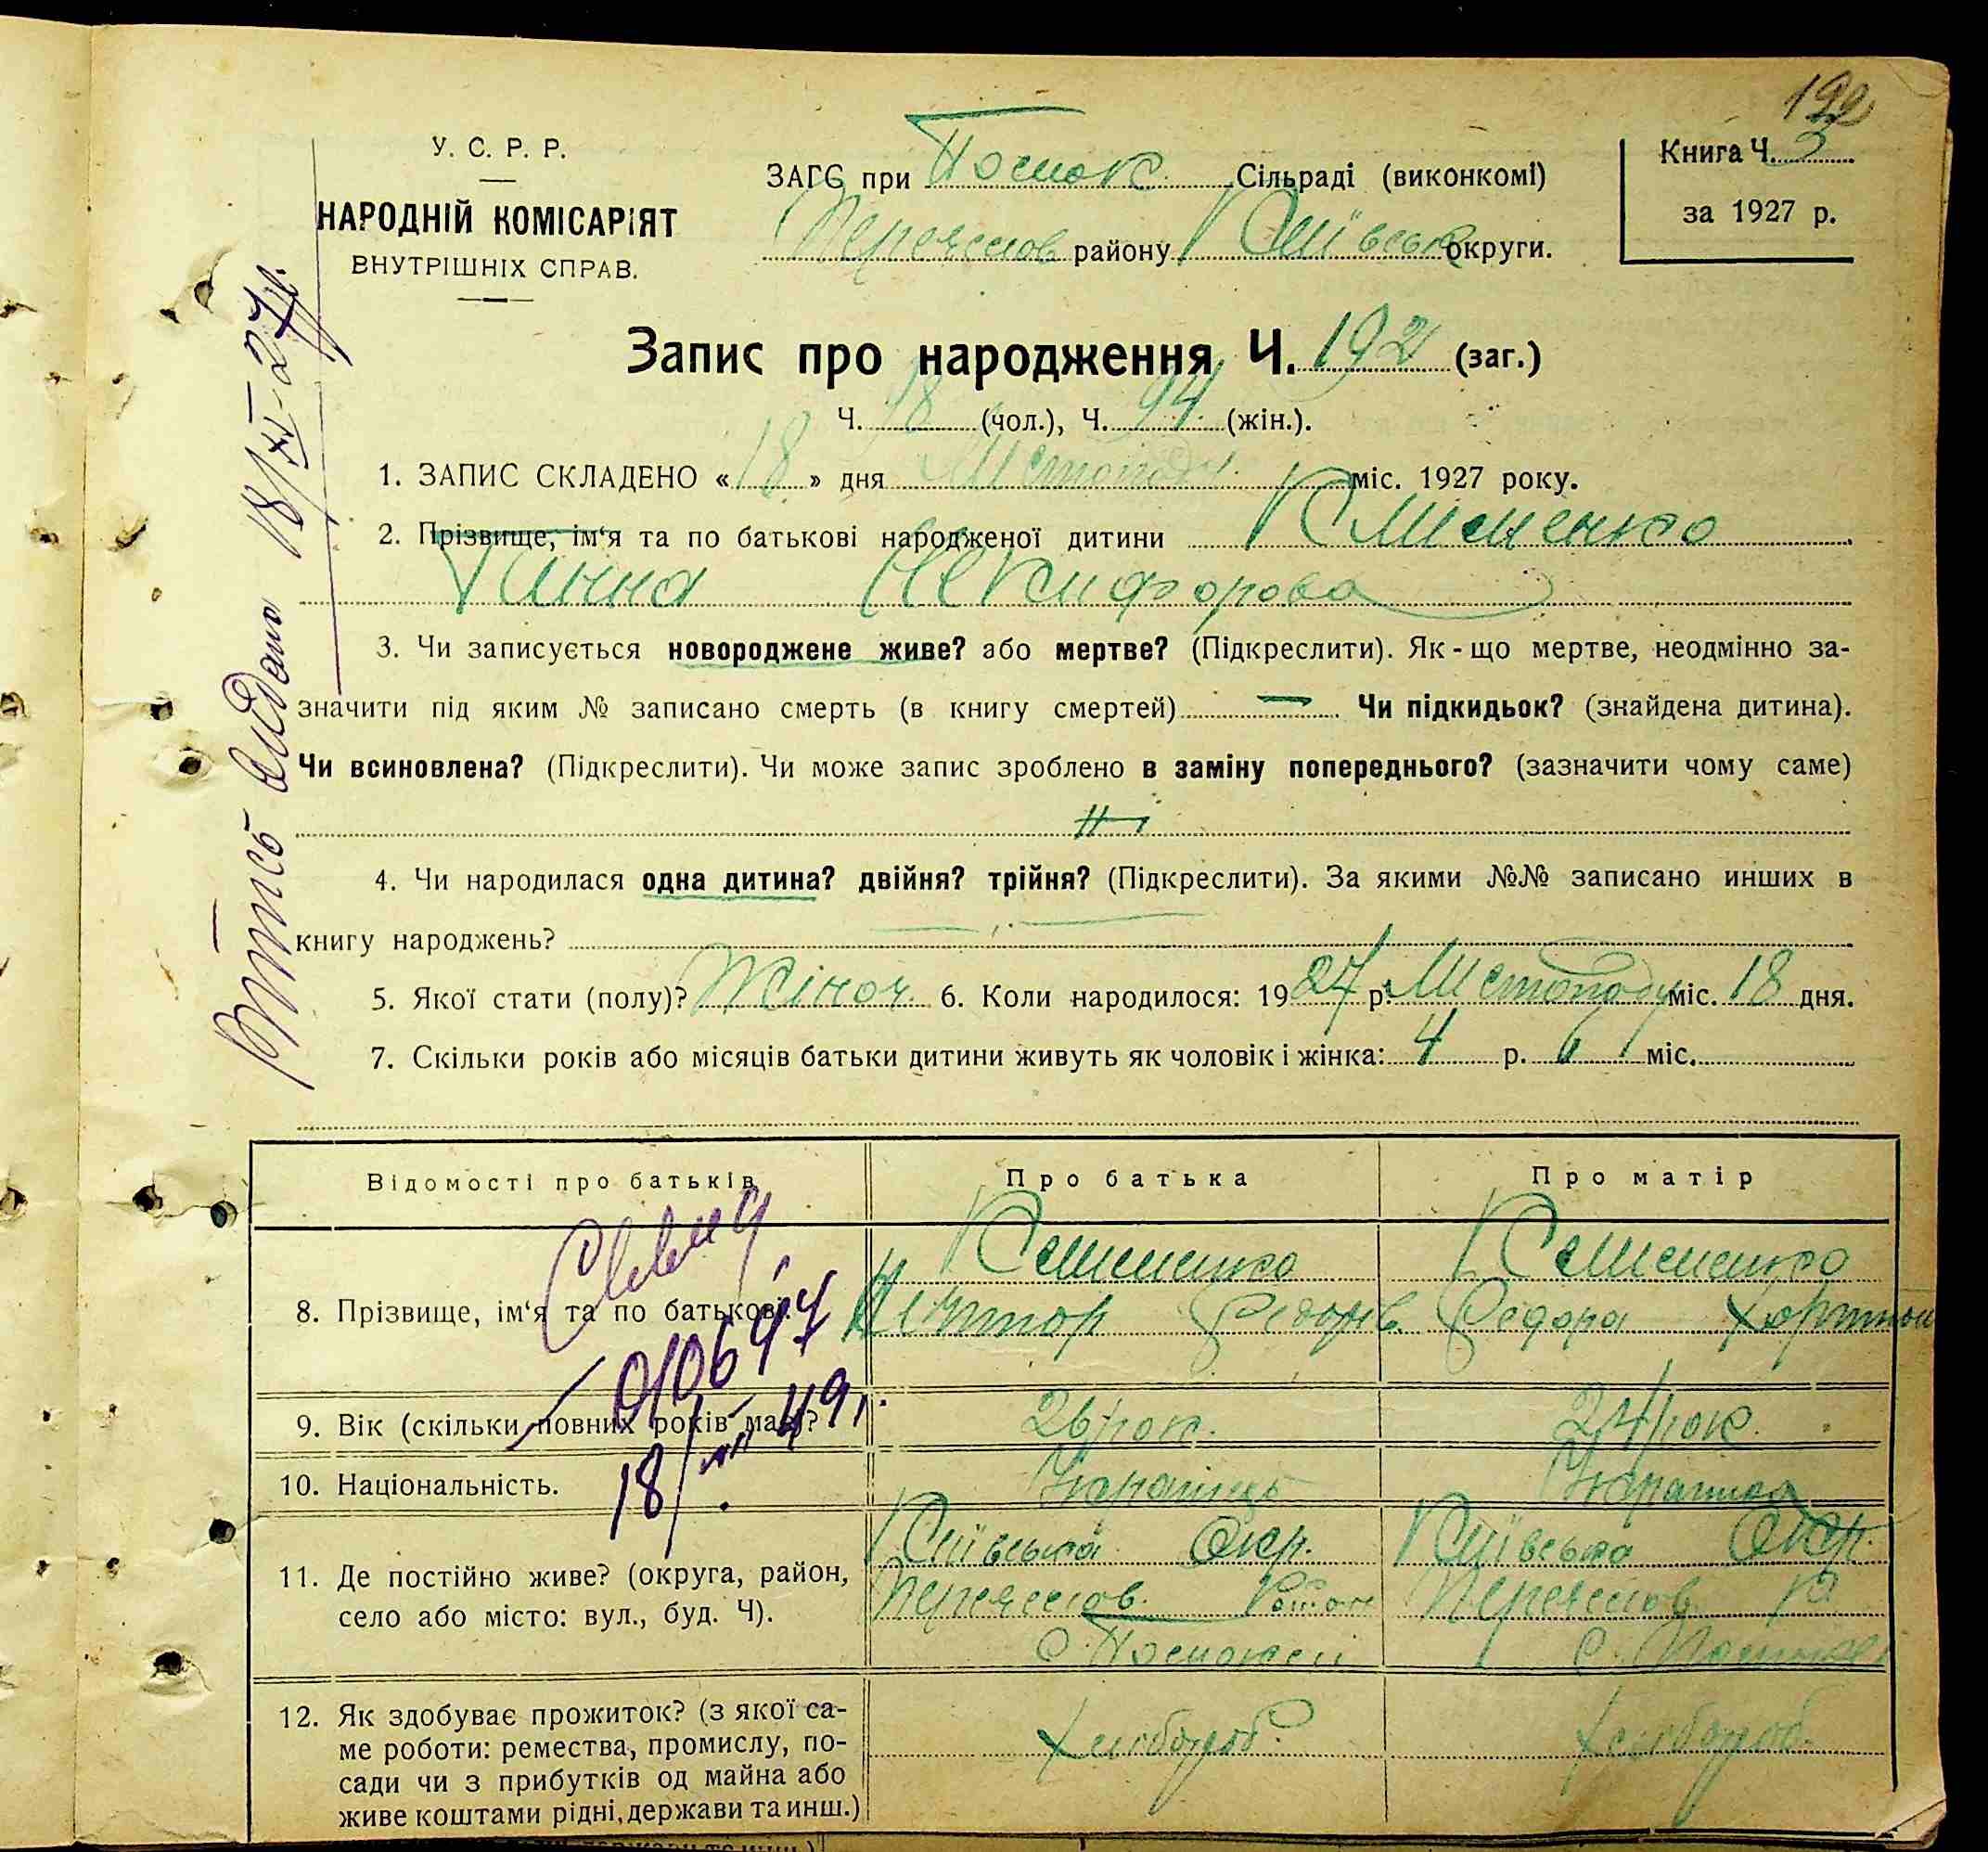 192
У. С. Р. Р.
НАРОДНІЙ КОМІСАРІЯТ
ВНУТРІШНІХ СПРАВ.
ЗАГС при Помок. Сільраді (виконкомі)
Переяслов району Київськ округи.
Книга Ч. 3
за 1927 р.
Запис про народження Ч. 192 (заг.)
Ч. 98 (чол.), Ч. 94 (жін.).
1. ЗАПИС СКЛАДЕНО « 18 » дня Листопаду міс. 1927 року.
2. Прізвище, ім'я та по батькові народженої дитини Клименко
Ганна Никифорова
3. Чи записується новороджене живе? або мертве? (Підкреслити). Як-що мертве, неодмінно за-
значити під яким № записано смерть (в книгу смертей) — Чи підкидьок? (знайдена дитина).
Чи всиновлена? (Підкреслити). Чи може запис зроблено в заміну попереднього? (зазначити чому саме)
4. Чи народилася одна дитина? двійня? трійня? (Підкреслити). За якими №№ записано инших в
книгу народжень?
5. Якої стати (полу)? Жіноч. 6. Коли народилося: 1927 р. Листопаду міс. 18 дня.
7. Скільки років або місяців батьки дитини живуть як чоловік і жінка: 4 р. міс.
Випись видано 18/XI-27р.
Відомості про батьків
Про батька
Про матір
8. Прізвище, ім'я та по батькові.
Клименко
Федорів
Клименко
Федора
010697
18/ 49р.
9. Вік (скільки повних років має)?
26 рок.
24 рок.
10. Національність.
Українець
Українка
11. Де постійно живе? (округа, район,
село або місто: вул., буд. Ч).
Київська Окр.
Переяслов. Район
Київська Окр.
Переяслов. Р
12. Як здобуває прожиток? (з якої са-
ме роботи: ремества, промислу, по-
сади чи з прибутків од майна або
живе коштами рідні, держави та инш.)
Хлібороб.
Хлібороб.